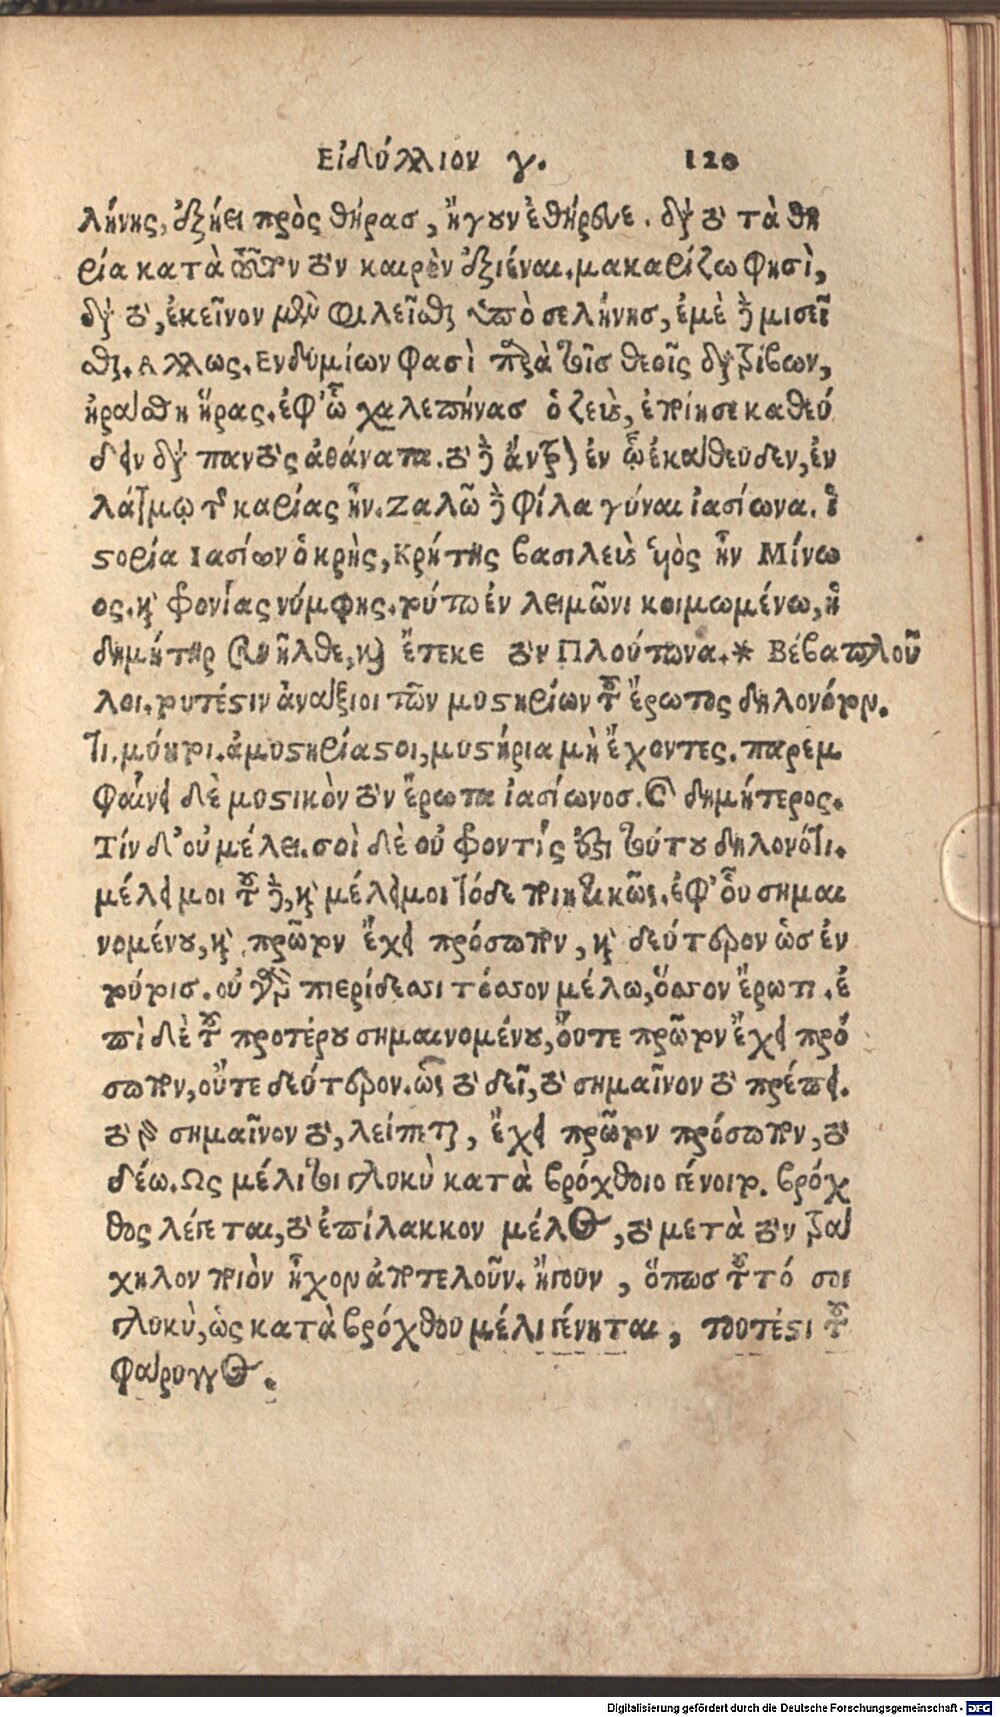 Εἰδύλλιον γ. 120
λήνης, ἐξῄει πρὸς θήρας, ἤγουν ἐθήρευε. διὰ τὸ τὰ θη
ρία κατὰ τοῦτον τὸν καιρὸν ἐξιέναι. μακαρίζω φησὶ,
διὰ τὸ, ἐκεῖνον μὲν φιλεῖσθαι ὑπὸ σελήνης, ἐμὲ δὲ μισεῖ
σθαι. Αλλως. Ενδυμίων φασὶ παρὰ τοῖς θεοῖς διατρίβων,
ἠράσθη ἥρας. ἐφ' ᾧ χαλεπήνας ὁ ζεὺς, ἐποίησε καθεύ
δειν διὰ παντὸς ἀθάνατα. τὸ δὲ ἄντρον ἐν ᾧ ἐκάθευδεν, ἐν
λάτμῳ τῆς καρίας ἦν. Ζαλῶ δὲ φίλα γύναι ἰασίωνα. ἱ
στορία Ιασίων ὁ κρὴς, Κρήτης βασιλεὺς υἱὸς ἦν Μίνω
ος. καὶ φρονίας νύμφης. τούτῳ ἐν λειμῶνι κοιμωμένῳ, ἡ
δημήτηρ συνῆλθε, καὶ ἔτεκε τὸν Πλούτωνα. * Βέβαπλοῦ
λοι. τουτέστιν ἀνάξιοι τῶν μυστηρίων τοῦ ἔρωτος δηλονότι.
τι. μόνοι. ἀμυστηρίαστοι, μυστήρια μὴ ἔχοντες. παρεμ
φαίνει δὲ μυστικὸν τὸν ἔρωτα ἰασίωνος. καὶ δημήτερος.
Τίν δ' οὐ μέλει. σοὶ δὲ οὐ φροντίς ἐστι τούτου δηλονότι.
μέλει μοι τοῦ δὲ, καὶ μέλει μοι τόδε ποιητικῶς. ἐφ' οὗ σημαι
νομένου, καὶ πρῶτον ἔχει πρόσωπον, καὶ δεύτερον ὡς ἐν
τούτοις. οὐ γὰρ πιερίδεσσι τόσσον μέλω, ὅσσον ἔρωτι. ἐ
πὶ δὲ τοῦ προτέρου σημαινομένου, οὔτε πρῶτον ἔχει πρό
σωπον, οὔτε δεύτερον. ὥσπερ τὸ δεῖ, τὸ σημαῖνον τὸ πρέπει.
τὸ γὰρ σημαῖνον τὸ, λείπεται, ἔχει πρῶτον πρόσωπον, τὸ
δέω. Ως μέλι τοι γλυκὺ κατὰ βρόχθοιο γένοιτο. βρόχ
θος λέγεται, τὸ ἐπίλακκον μέλος, τὸ μετὰ τὸν τρά
χηλον ποιὸν ἦχον ἀποτελοῦν. ἤγουν, ὅπως τοῦτό σοι
γλυκὺ, ὡς κατὰ βρόχθου μέλι γένηται, τουτέστι τοῦ
φάρυγγος.
Digitalisierung gefördert durch die Deutsche Forschungsgemeinschaft - DFG